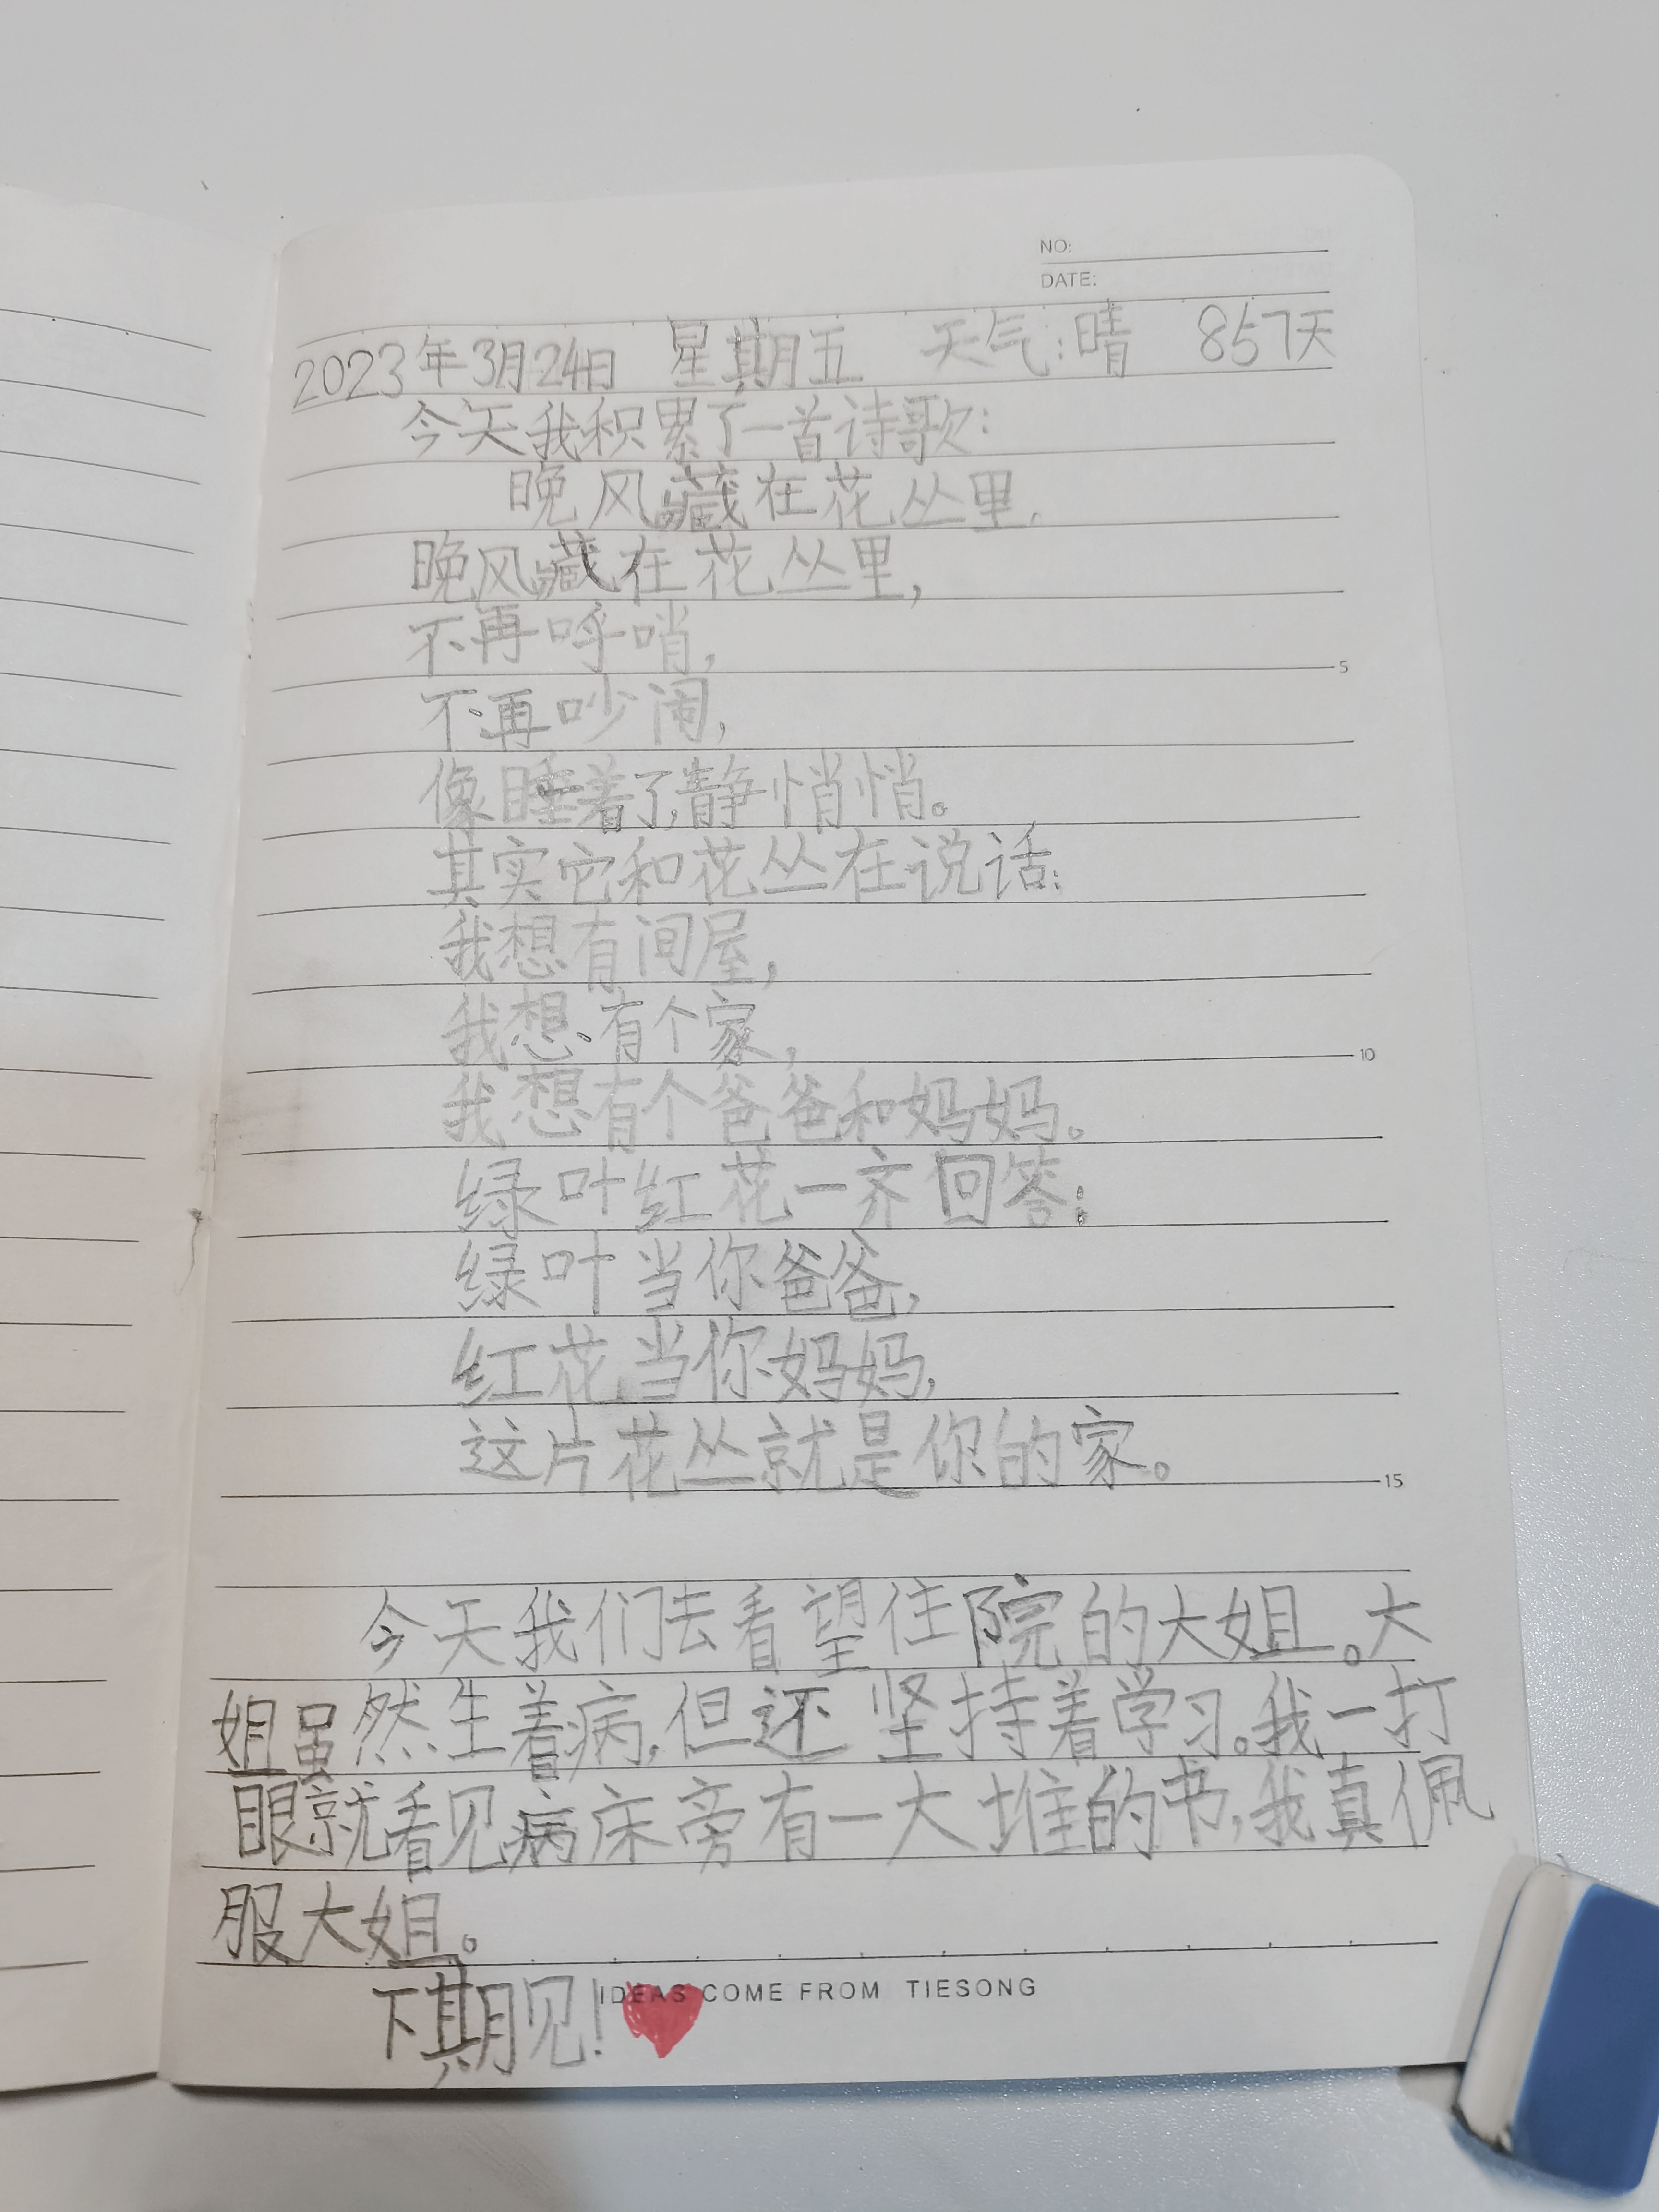 NO:
DATE:
2023年3月24日 星期五 天气:晴 857天
今天我积累了一首诗歌:
晚风藏在花丛里.
晚风藏在花丛里,
不再呼哨,
不再吵闹,
像睡着了,静悄悄。
其实它和花丛在说话:
我想有间屋,
我想有个家,
我想有个爸爸和妈妈。
绿叶红花一齐回答:
绿叶当你爸爸,
红花当你妈妈,
这片花丛就是你的家。
今天我们去看望住院的大姐。大
姐虽然生着病,但还坚持着学习。我一打
眼就看见病床旁有一大堆的书,我真佩
服大姐。
下期见!
IDEAS COME FROM TIESONG
5
10
15